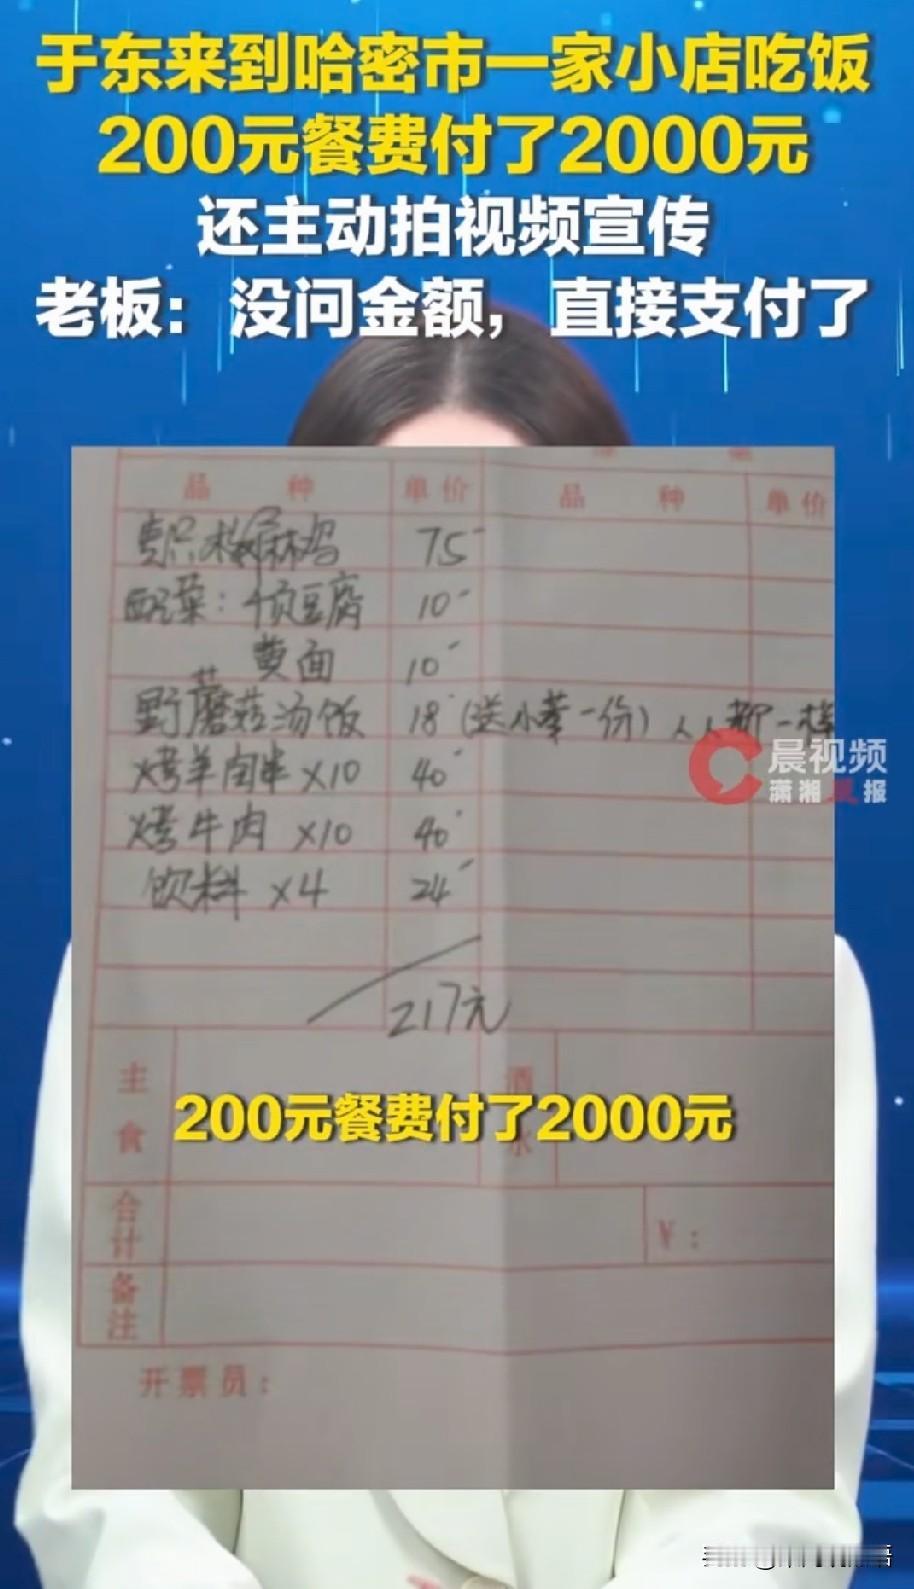 于东来到哈密市一家小店吃饭
200元餐费付了2000元
还主动拍视频宣传
老板：没问金额，直接支付了
品 种 单价 品 种 单价
椒麻鸡 75
配菜：千页豆腐 10
黄面 10
野蘑菇汤饭 18 (送小菜一份) 人人都一样
烤羊肉串 x10 40
烤牛肉 x10 40
饮料 x4 24
217元
晨视频
潇湘晨报
主食 酒水
200元餐费付了2000元
合计 ¥：
备注
开票员：